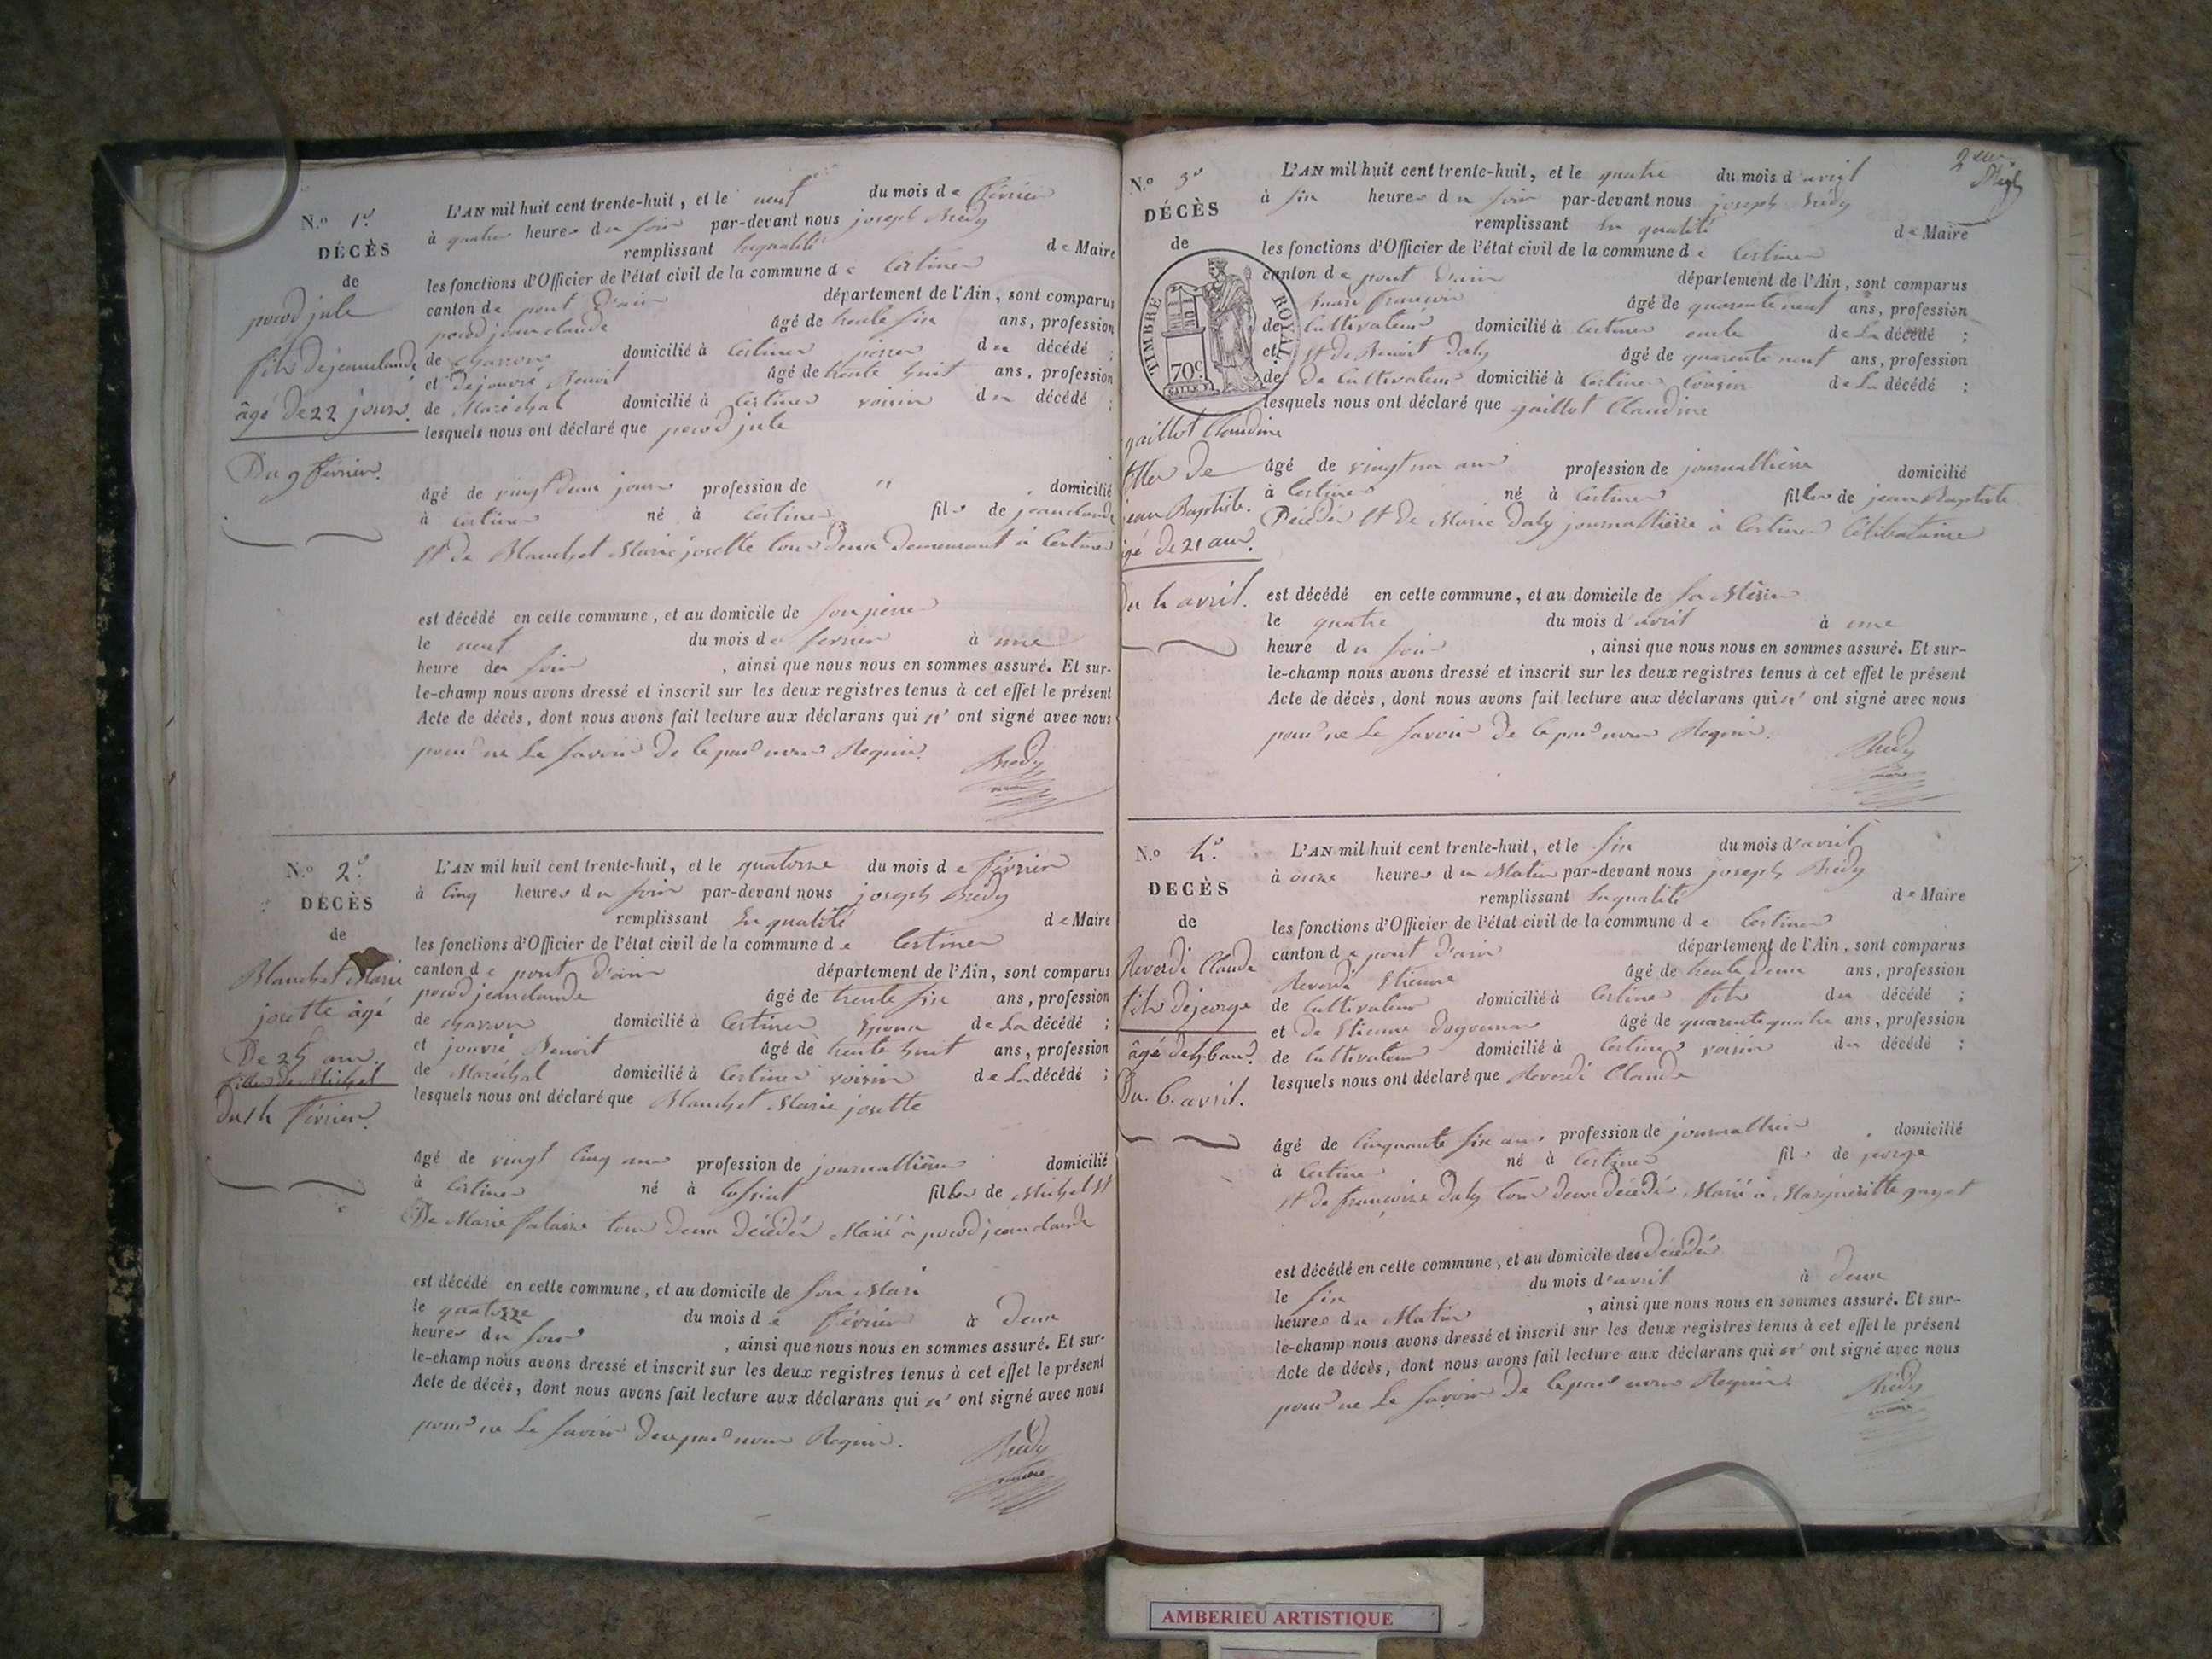 N.o 1.er
DÉCÈS
de
pocod jule
fils de jeanclaude
âgé de 22 jours.
Du 9 février.
L'AN mil huit cent trente-huit, et le neuf du mois de février
à quatre heures du soir par-devant nous joseph Brédy
remplissant En qualité de Maire
les fonctions d'Officier de l'état civil de la commune de Certines
canton de pont d'ain département de l'Ain, sont comparus
pocod jeanclaude âgé de trente six ans, profession
de charron domicilié à Certines perre du décédé ;
et De jouvré Benoit âgé de trente huit ans, profession
de Maréchal domicilié à Certines voisin du décédé ;
lesquels nous ont déclaré que pocod jule
âgé de vingt deux jours profession de " domicilié
à Certines né à Certines fils de jeanclaude
Et de Blanchet Marie josette tous deux demeurant à Certines
est décédé en cette commune, et au domicile de son perre
le neuf du mois de fevrier à une
heure du soir , ainsi que nous nous en sommes assuré. Et sur-
le-champ nous avons dressé et inscrit sur les deux registres tenus à cet effet le présent
Acte de décès, dont nous avons fait lecture aux déclarans qui n' ont signé avec nous
pour ne Le savoir De ce par nous Requis.
Brédy
maire
N.o 2.e
DÉCÈS
de
Blanchet Marie
josette âgé
De 25 ans.
fille de Michel
Du 14 février.
L'AN mil huit cent trente-huit, et le quatorze du mois de février
à Cinq heures du soir par-devant nous joseph Brédy
remplissant En qualité de Maire
les fonctions d'Officier de l'état civil de la commune de Certines
canton de pont d'ain département de l'Ain, sont comparus
pocod jeanclaude âgé de trente six ans, profession
de charron domicilié à Certines Epoux de La décédé ;
et jouvré Benoit âgé de trente huit ans, profession
de Maréchal domicilié à Certines voisin de La décédé ;
lesquels nous ont déclaré que Blanchet Marie josette
âgé de vingt Cinq ans profession de journallière domicilié
à Certines né à fille de Michel Et
De Marie tous deux décédés Marié à pocod jeanclaude
est décédé en cette commune, et au domicile de son Mari
le quatorze du mois de février à Deux
heures du soir , ainsi que nous nous en sommes assuré. Et sur-
le-champ nous avons dressé et inscrit sur les deux registres tenus à cet effet le présent
Acte de décès, dont nous avons fait lecture aux déclarans qui n' ont signé avec nous
pour ne Le savoir De ce par nous Requis.
Brédy
maire
2eme
N.o 3.e
DÉCÈS
de
TIMBRE ROYAL
70c
gaillot Claudine
fille De
jean Baptiste.
âgé De 21 ans.
Du 4 avril.
L'AN mil huit cent trente-huit, et le quatre du mois d'avril
à six heures du soir par-devant nous joseph Brédy
remplissant En qualité de Maire
les fonctions d'Officier de l'état civil de la commune de Certines
canton de pont d'ain département de l'Ain, sont comparus
françois âgé de quarente neuf ans, profession
de Cultivateur domicilié à Certines oncle de La décédé ;
et Et de Benoit Daly âgé de quarente neuf ans, profession
de De Cultivateur domicilié à Certines Cousin de La décédé ;
lesquels nous ont déclaré que gaillot Claudine
âgé de vingt un ans profession de journallière domicilié
à Certines né à Certines fille de jean Baptiste
Décédé Et De Marie Daly journallière à Certines Célibataire
est décédé en cette commune, et au domicile de sa Mère
le quatre du mois d'avril à une
heure du soir , ainsi que nous nous en sommes assuré. Et sur-
le-champ nous avons dressé et inscrit sur les deux registres tenus à cet effet le présent
Acte de décès, dont nous avons fait lecture aux déclarans qui n' ont signé avec nous
pour ne Le savoir De ce par nous Requis.
Brédy
maire
N.o 4.e
DECÈS
de
Reverdi Claude
fils de jeorge
Du 6 avril.
L'AN mil huit cent trente-huit, et le six du mois d'avril
à onze heures du Matin par-devant nous joseph Brédy
remplissant En qualité de Maire
les fonctions d'Officier de l'état civil de la commune de Certines
canton de pont d'ain département de l'Ain, sont comparus
Reverdi Etienne âgé de trente deux ans, profession
de Cultivateur domicilié à Certines fils du décédé ;
et De Etienne âgé de quarente quatre ans, profession
de Cultivateur domicilié à Certines voisin du décédé ;
lesquels nous ont déclaré que Reverdi Claude
âgé de Cinquante six ans profession de journallier domicilié
à Certines né à Certines fils de jeorge
Et de françoise Daly tous deux décédés Marié à Margueritte gayet
est décédé en cette commune, et au domicile des Décédés
le six du mois d'avril à deux
heures du Matin , ainsi que nous nous en sommes assuré. Et sur-
le-champ nous avons dressé et inscrit sur les deux registres tenus à cet effet le présent
Acte de décès, dont nous avons fait lecture aux déclarans qui n' ont signé avec nous
pour ne Le savoir De ce par nous Requis.
Brédy
maire
AMBERIEU ARTISTIQUE